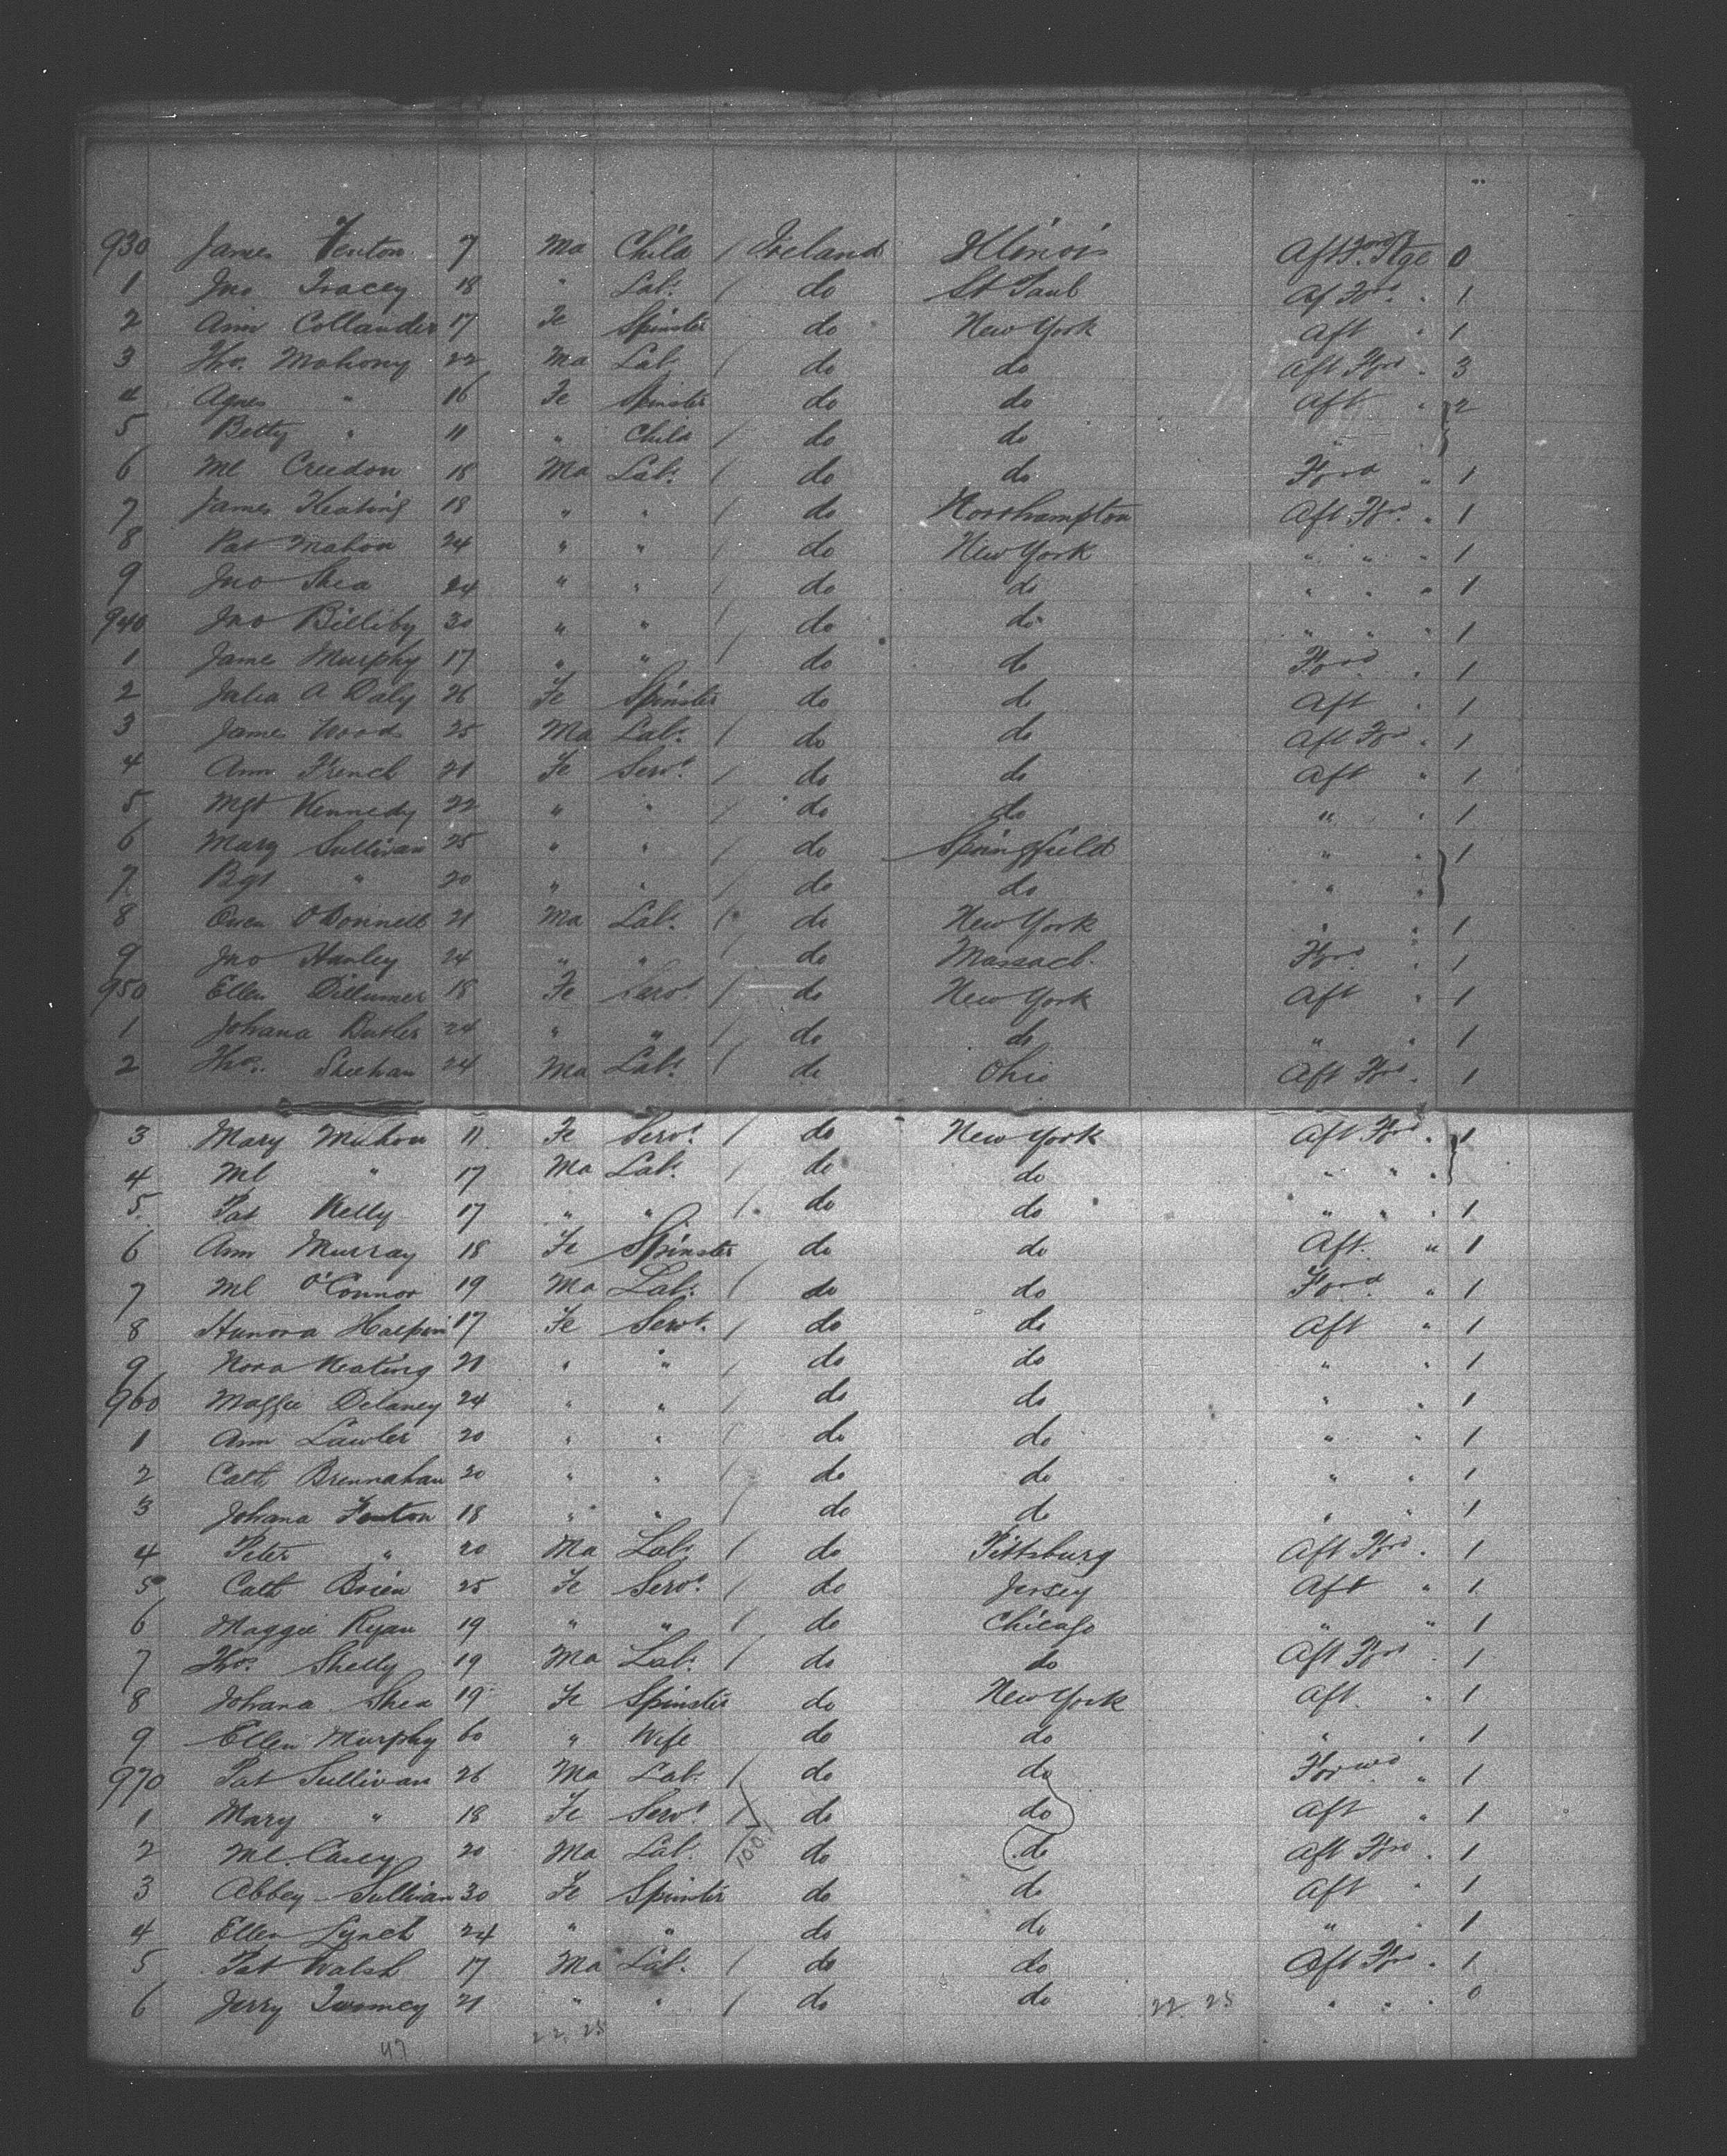 930 James Fenton 7 Ma Child / Ireland Illinois Aft Forwd Stge 0
1 Jno Tracey 18 " Labr / do St Paul Af Forwd " 1
2 Ann Collander 17 Fe Spinster do New York Aft " 1
3 Thos. Mahony 22 Ma Lab / do do Aft Ford " 3
4 Agnes " 16 Fe Spinster do do Aft " 2
5 Betty " 11 " Child / do do " "
6 Ml Creedon 18 Ma Labr / do do Ford " 1
7 James Keating 18 " " / do Northampton Aft Ford " 1
8 Pat Mahon 24 " " / do New York " " " 1
9 Jno Shea 24 " " / do do " " " 1
940 Jno Billiby 30 " " / do do " " " 1
1 Jame Murphy 17 " " / do do Ford " 1
2 Julia A Daly 26 Fe Spinster do do Aft " 1
3 Jame Wood 25 Ma Labr / do do Aft For " 1
4 Ann French 21 Fe Servt / do do Aft " 1
5 Mgt Kennedy 22 " " / do do " " 1
6 Mary Sullivan 25 " " / do Springfield " " 1
7 Bgt " 20 " " / do do " "
8 Owen O'Donnell 21 Ma Labr / do New York " " 1
9 Jno Hanley 24 " " / do Massach. Ford " 1
950 Ellen Dillumer 18 Fe Servt / do New York Aft " 1
1 Johana Butler 24 " " / do do " " 1
2 Thos. Sheehan 24 Ma Labr / do Ohio Aft Ford " 1
3 Mary Mahon 11 Fe Servt / do New York Aft Ford " 1
4 Ml " 17 Ma Labr / do do " " "
5 Pat Kelly 17 " " / do do " " " 1
6 Ann Murray 18 Fe Spinster do do Aft. " 1
7 Ml O'Connor 19 Ma Labr / do do Ford " 1
8 Hunora Halpin 17 Fe Servt / do do Aft " 1
9 Nora Keating 21 " " / do do " " 1
960 Maggie Delaney 24 " " / do do " " 1
1 Ann Lawler 20 " " / do do " " 1
2 Cath Brennahan 20 " " / do do " " 1
3 Johana Fenton 18 " " / do do " " 1
4 Peter " 20 Ma Labr / do Pittsburg Aft Ford " 1
5 Cath Brien 25 Fe Servt / do Jersey Aft " 1
6 Maggie Ryan 19 " " / do Chicago " " 1
7 Thos. Shelly 19 Ma Labr / do do Aft Ford " 1
8 Johana Shea 19 Fe Spinster do New York Aft " 1
9 Ellen Murphy 60 " Wife do do " " 1
970 Pat Sullivan 26 Ma Labr / do do Forwd " 1
1 Mary " 18 Fe Servt / do do Aft " 1
2 Ml. Casey 20 Ma Labr / 100 do do Aft Ford " 1
3 Abbey Sullivan 30 Fe Spinster do do Aft " 1
4 Ellen Lynch 24 " " do do " " 1
5 Pat Walsh 17 Ma Labr / do do Aft Ford " 1
6 Jerry Twomey 21 " " / do do 22 25 " " " 0
47 22 25